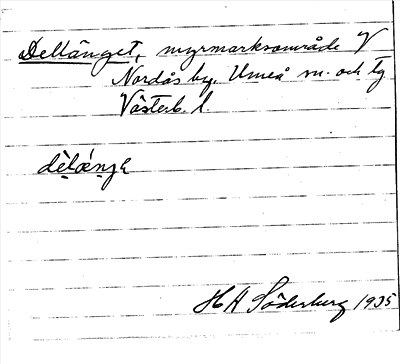 Dellänget, myrmarksområde V
Nordås by. Umeå sn. och lg
Västerb. l.
dèlǽŋe
H A Söderberg 1935